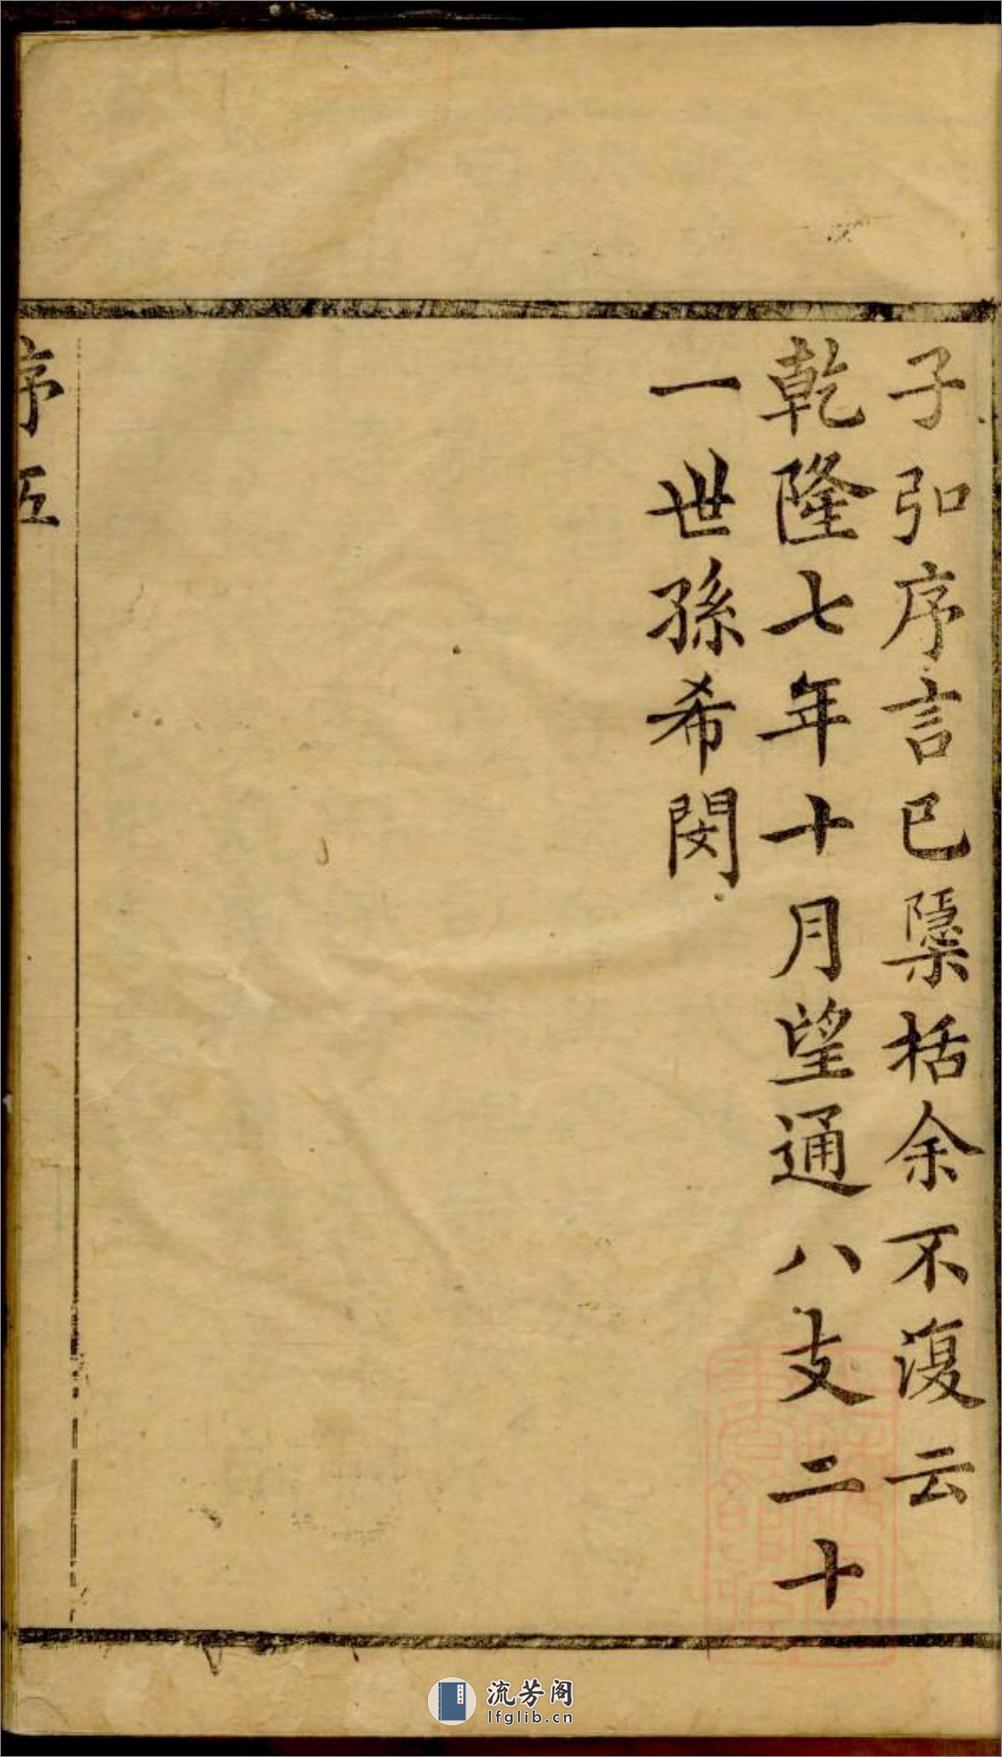 子弘序言已檃括余不復云
乾隆七年十月望通八支二十
一世孫希閔
序五
流芳阁
lfglib.cn